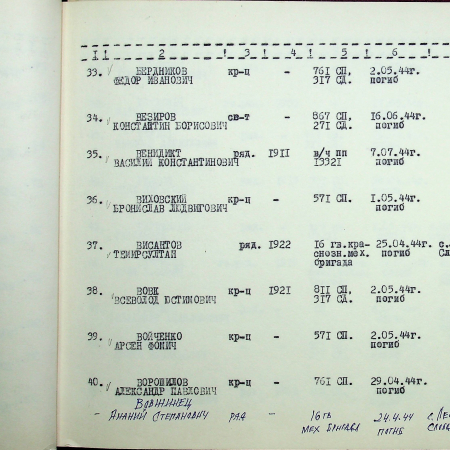 I ! 2 ! 3 ! 4 ! 5 ! 6 !
33. БЕРДНИКОВ кр-ц - 761 СП, 2.05.44г.
ФЕДОР ИВАНОВИЧ 317 СД. погиб
34. ВЕЗИРОВ св-т - 867 СП, 16.06.44г.
КОНСТАНТИН БОРИСОВИЧ 271 СД. погиб
35. ВЕНИДИКТ ряд. 1911 в/ч пп 7.07.44г.
ВАСИЛИЙ КОНСТАНТИНОВИЧ 13321 погиб
36. ВИХОВСКИЙ кр-ц - 571 СП. 1.05.44г.
БРОНИСЛАВ ЛЮДВИГОВИЧ погиб
37. ВИСАНТОВ ряд. 1922 16 гв.кра- 25.04.44г. с.
ТЕМИРСУЛТАН снозн.мех. погиб Сл
бригада
38. ВОВК кр-ц 1921 811 СП, 2.05.44г.
ВСЕВОЛОД ЮСТИМОВИЧ 317 СД. погиб
39. ВОЙЧЕНКО кр-ц - 571 СП. 2.05.44г.
АРСЕН ФОМИЧ погиб
40. ВОРОШИЛОВ кр-ц - 761 СП. 29.04.44г.
АЛЕКСАНДР ПАВЛОВИЧ погиб
- АНАНИЙ СТЕПАНОВИЧ РЯД - 16 гв 24.4.44
МЕХ БРИГАДА ПОГИБ